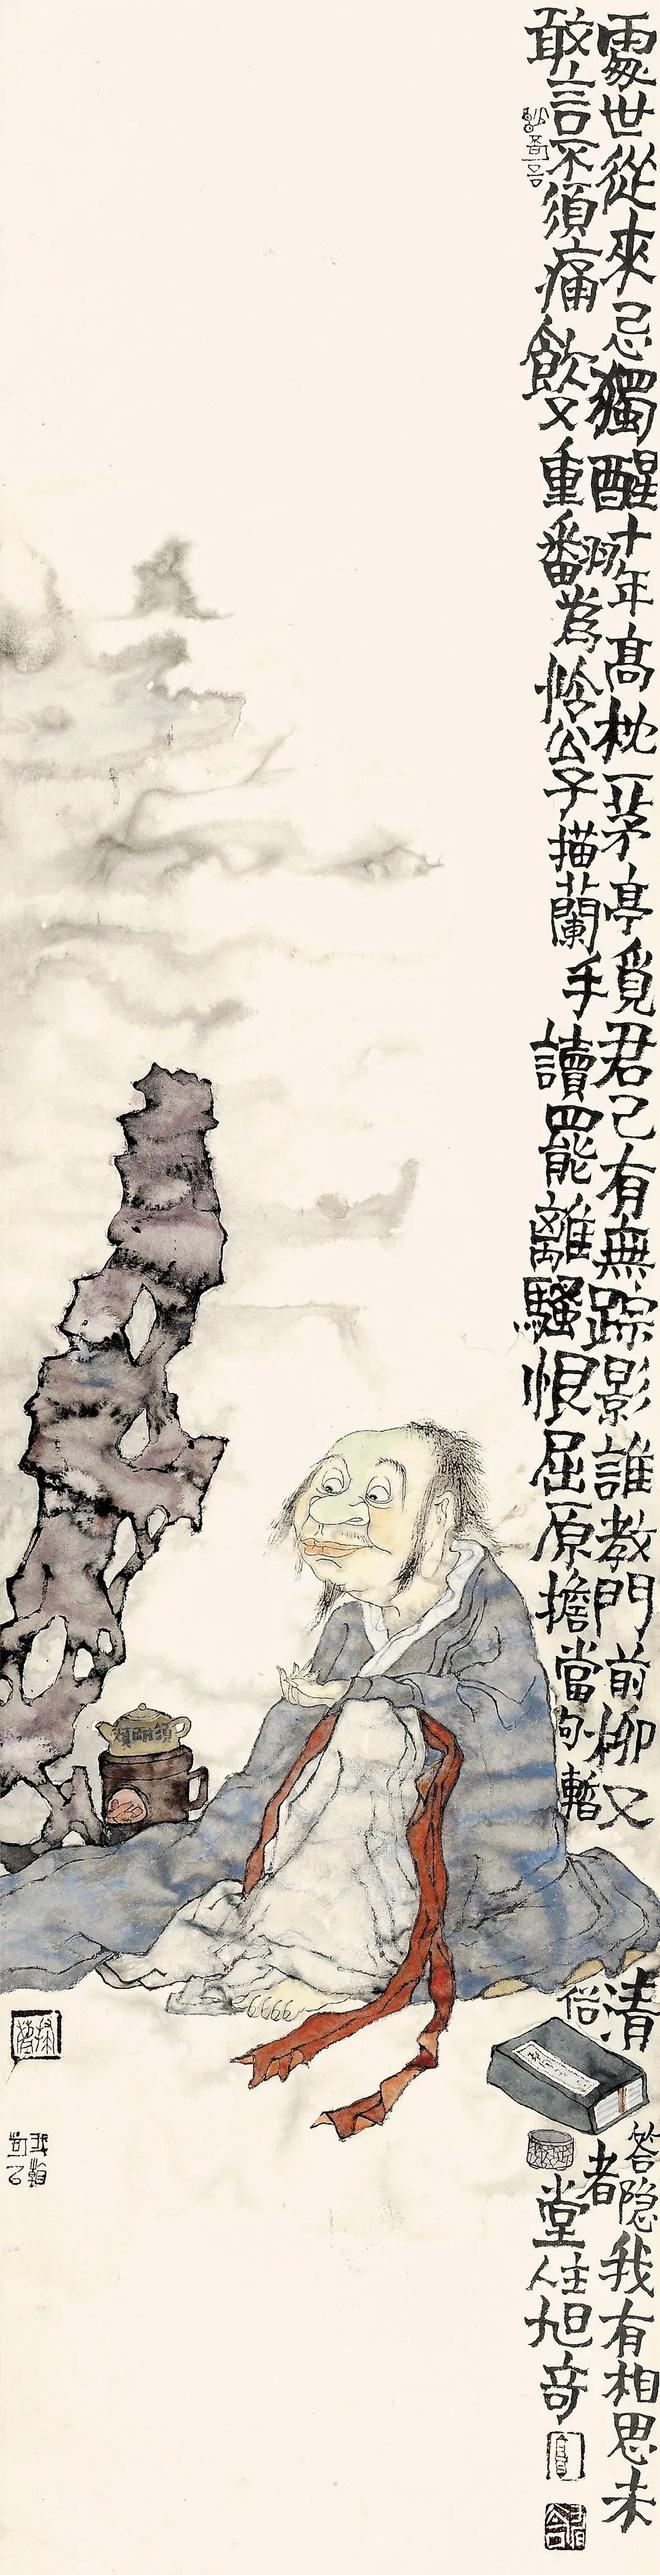 處世從來忌獨醒十年高枕一茅亭覓君已有無踪影誰教門前柳又清答隐者我有相思未
敢言不須痛飲又重翻為怜公子描蘭手讀罷離騷恨屈原擔當句暫俗堂主人旭奇